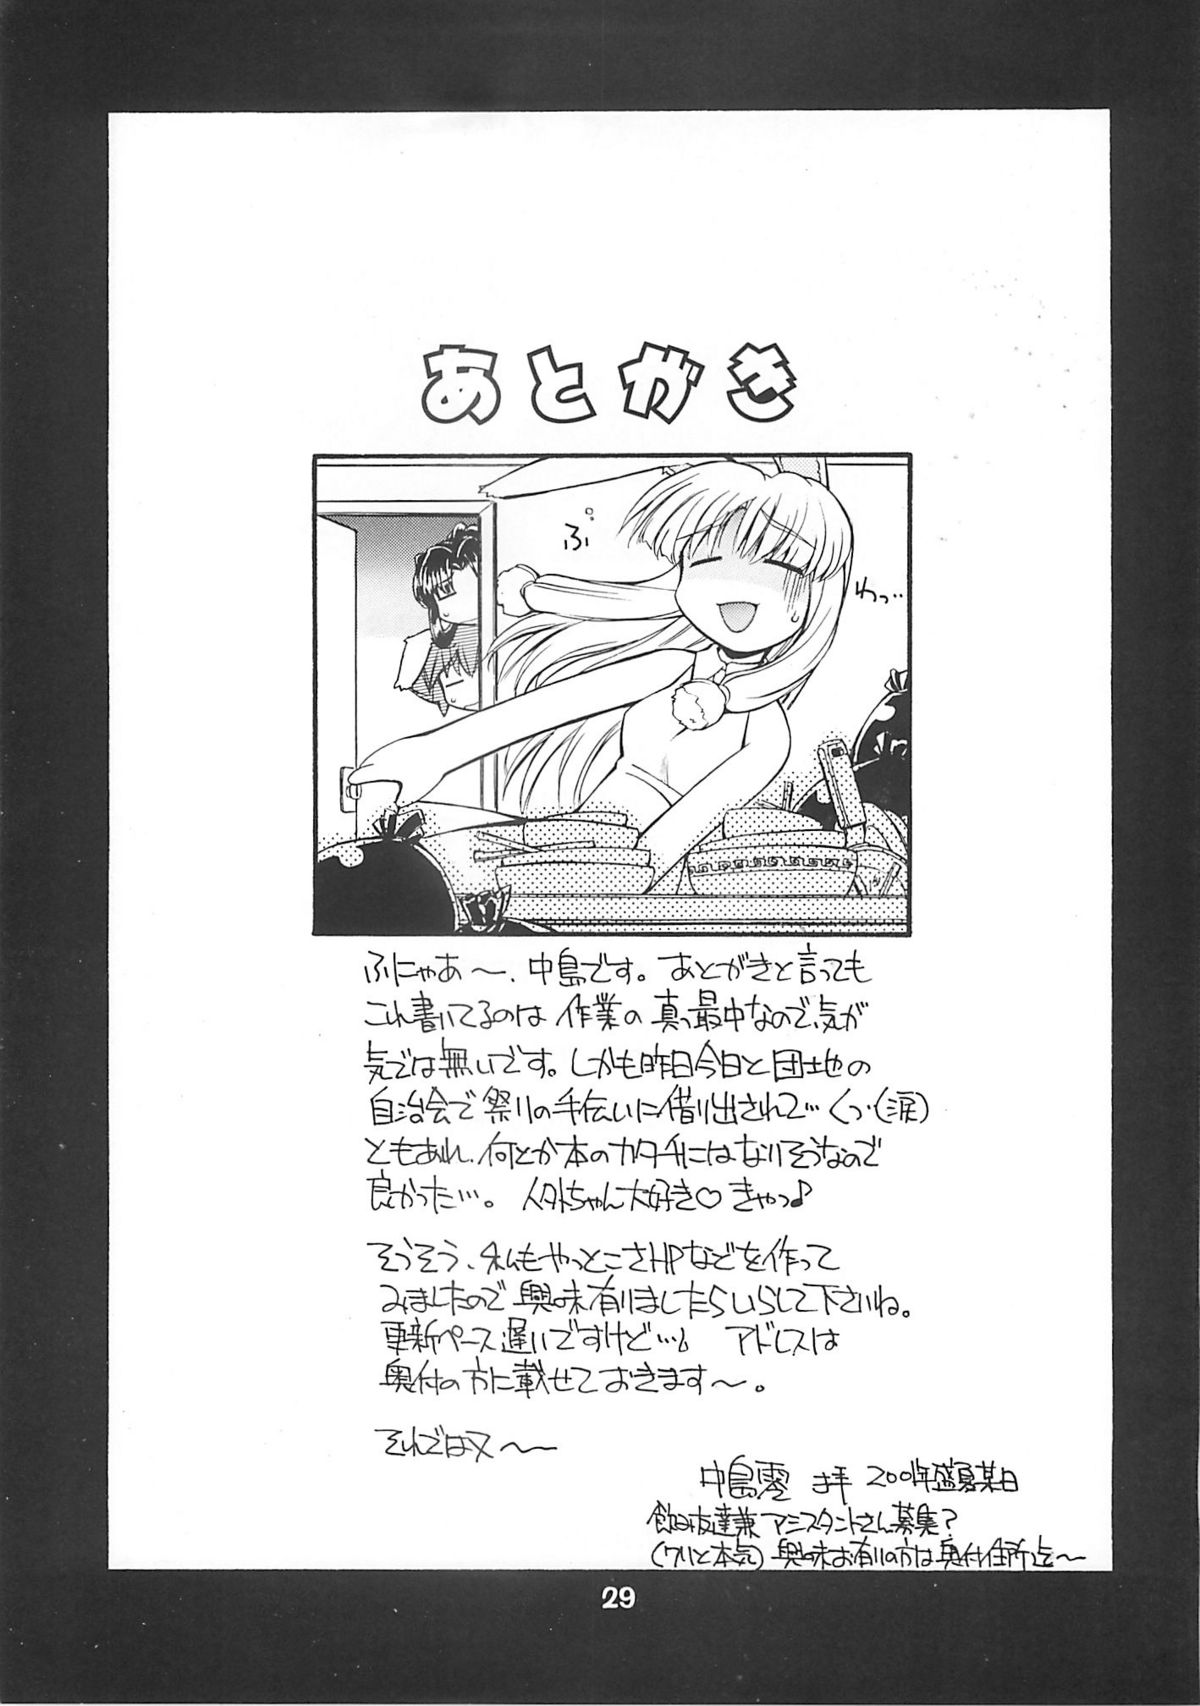 あとがき
ぷ。
わっ…
ふにゃあ～、中島です。あとがきと言っても
これ書いてるのは作業の真っ最中なので、気が
気では無いです。しかも昨日今日と団地の
自治会で祭りの手伝いに借り出されて…くっ・(涙)
ともあれ、何とか本のカタチにはなりそうなので
良かった…。人外ちゃん大好き♡きゃっ♪
そうそう、私もやっとこさHPなどを作って
みましたので興味有りましたらいらして下さいね。
更新ペース遅いですけど…。アドレスは
奥付の方に載せておきます～。
それではヌ～
中島零 拝 2001年盛夏某日
飲み友達兼アシスタントさん募集?
(ワリと本気)興味お有りの方は奥付住所迄～
29